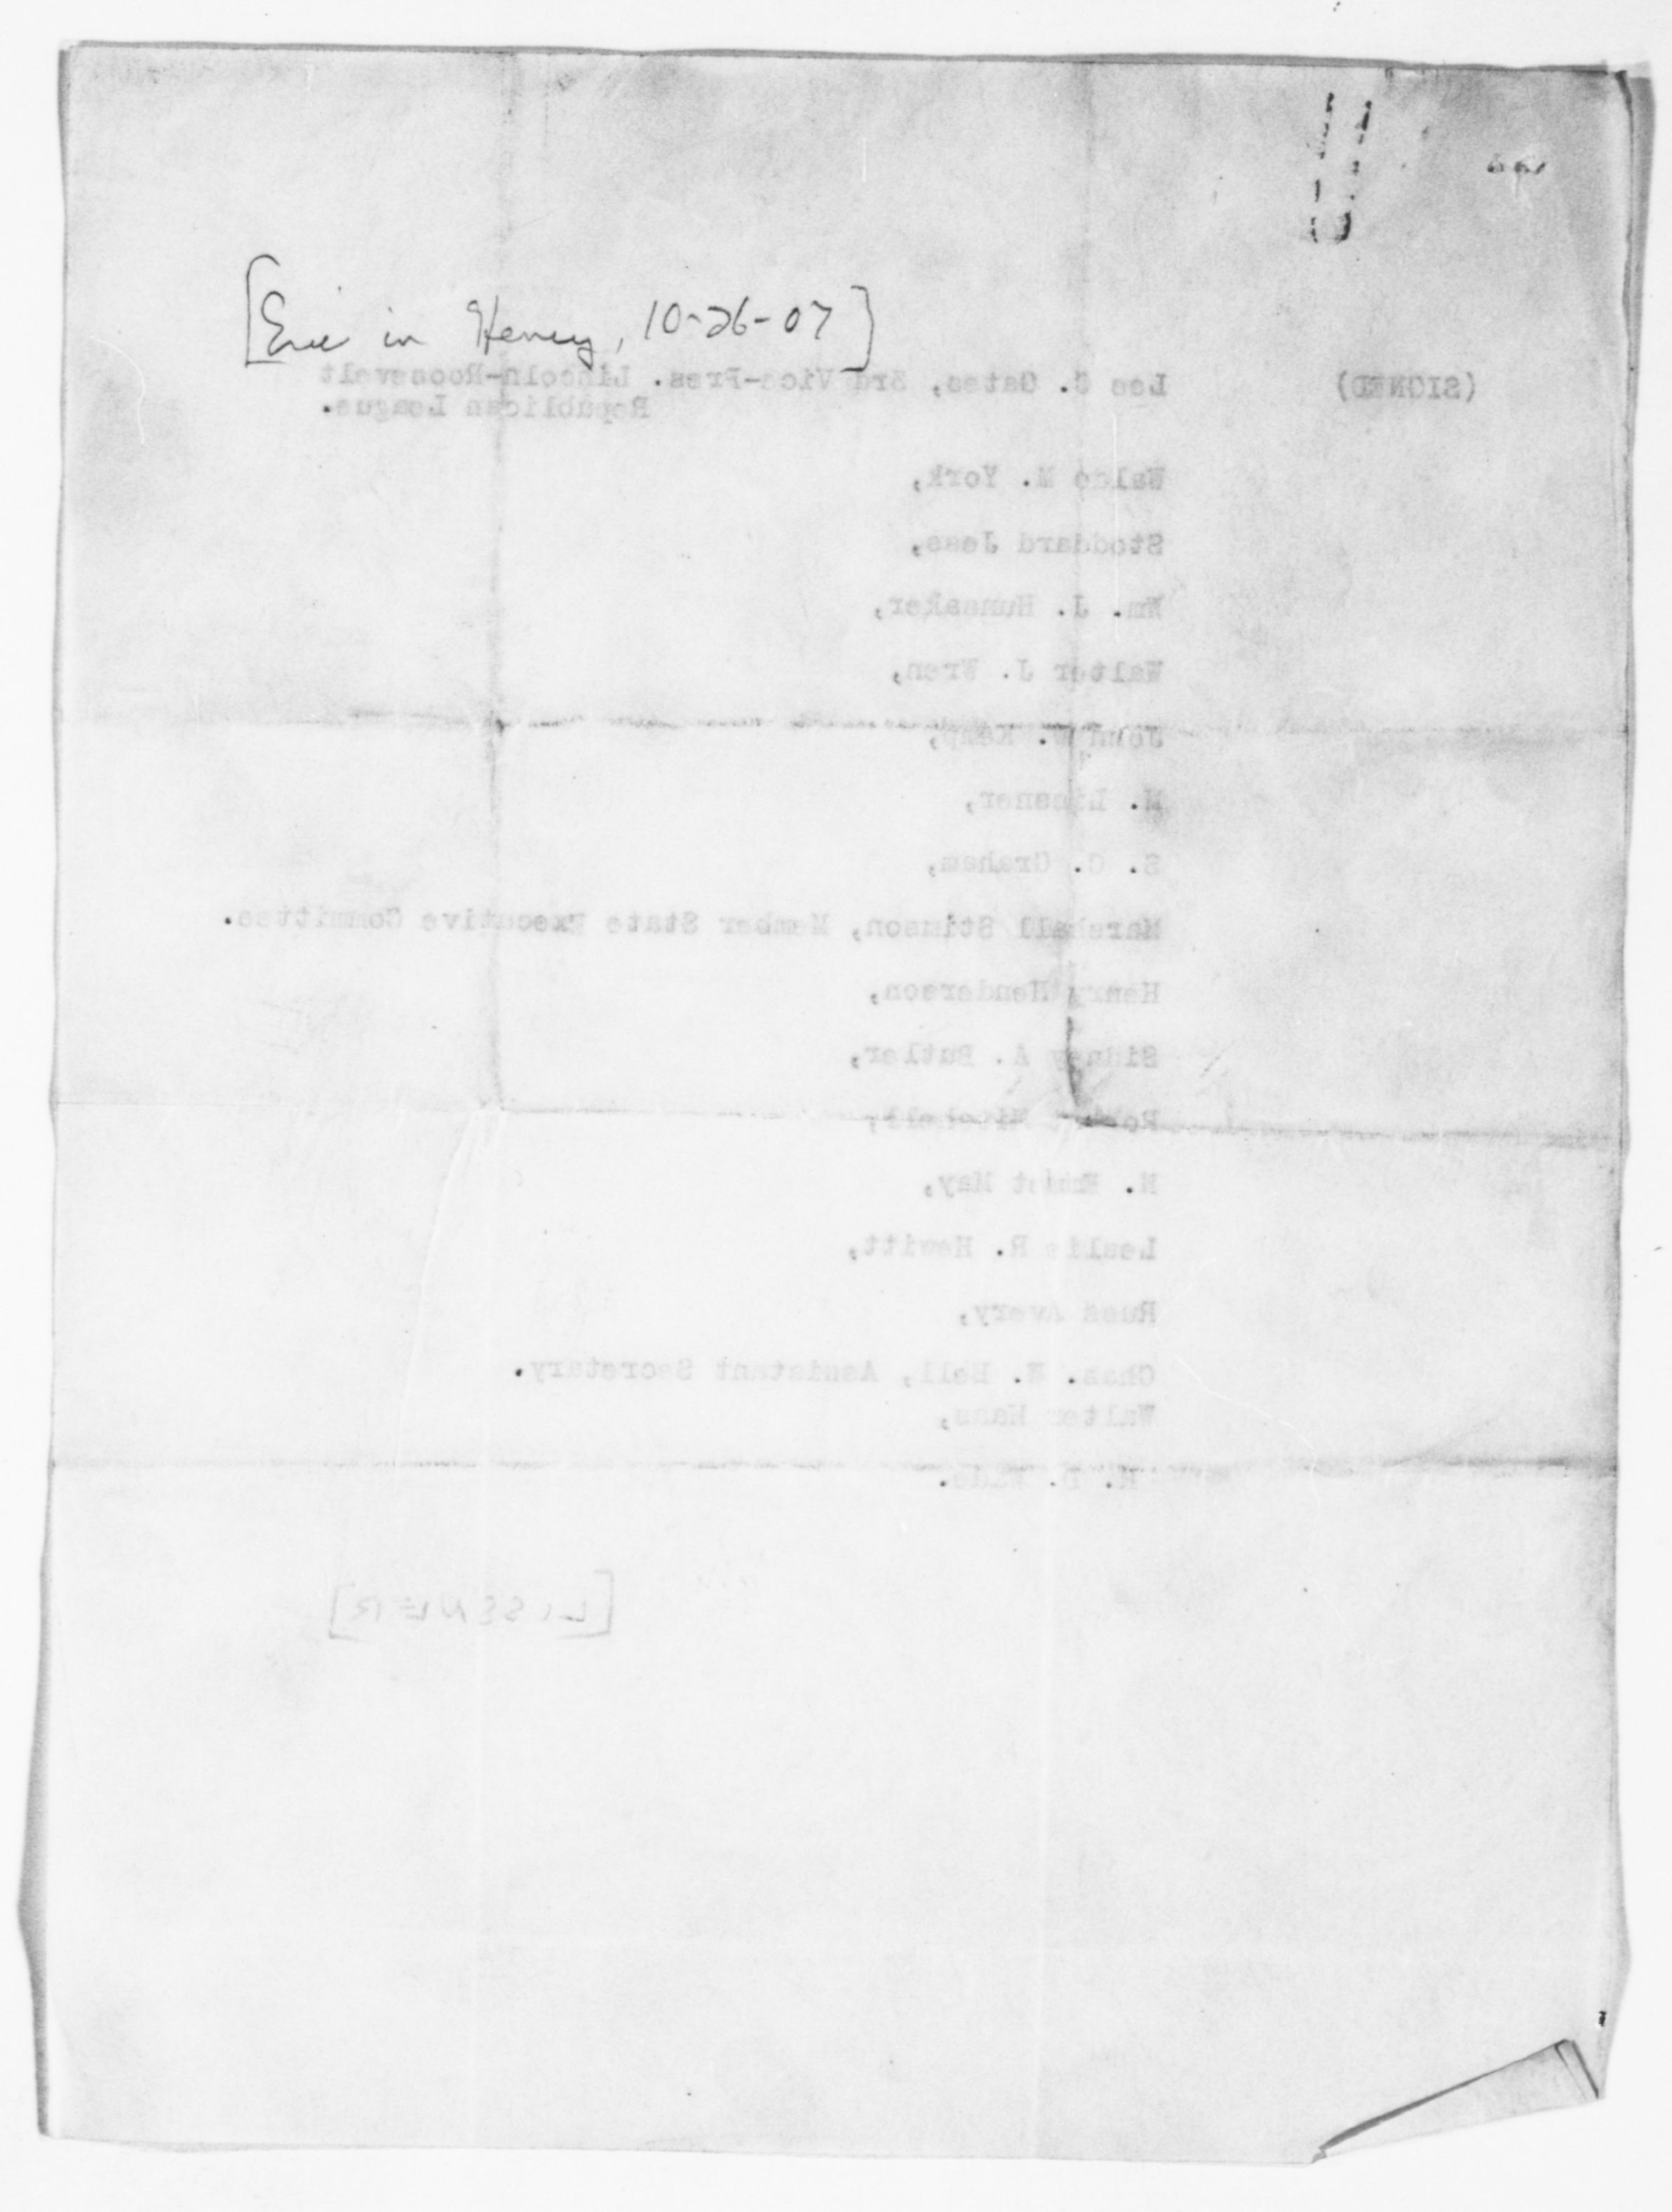 [Enc in Heney, 10-26-07]
(SIGNED) Lee C. Gates, 3rd Vice-Pres. Lincoln-Roosevelt
Republican League.
Waldo M. York,
Stoddard Jess,
Wm. J. Hunsaker,
Walter J. Wren,
John W. Kemp,
M. Lissner,
S. C. Graham,
Marshall Stimson, Member State Executive Committee.
Henry Henderson,
Sidney A. Butler,
Robert Mitchell,
Ernst May,
Leslie R. Hewitt,
Russ Avery,
Chas. W. Bell, Assistant Secretary.
Walter Haas,
[LISSNER]